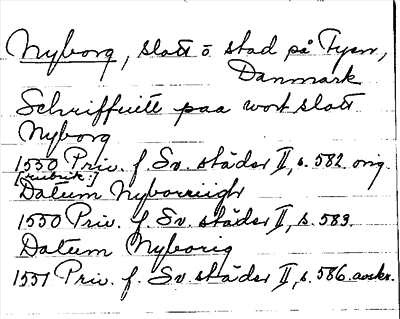 Nyborg, slott o. stad på Fyen,
Danmark
Schriffuitt paa wort slott
Nyborg
1550 Priv. f. Sv. städer II, s. 582. orig.
[rubrik:]
Datum Nyborriigh
1550 Priv. f. Sv. städer II, s. 583.
Datum Nyborig
1551 Priv. f. Sv städer II, s. 586. avskr.